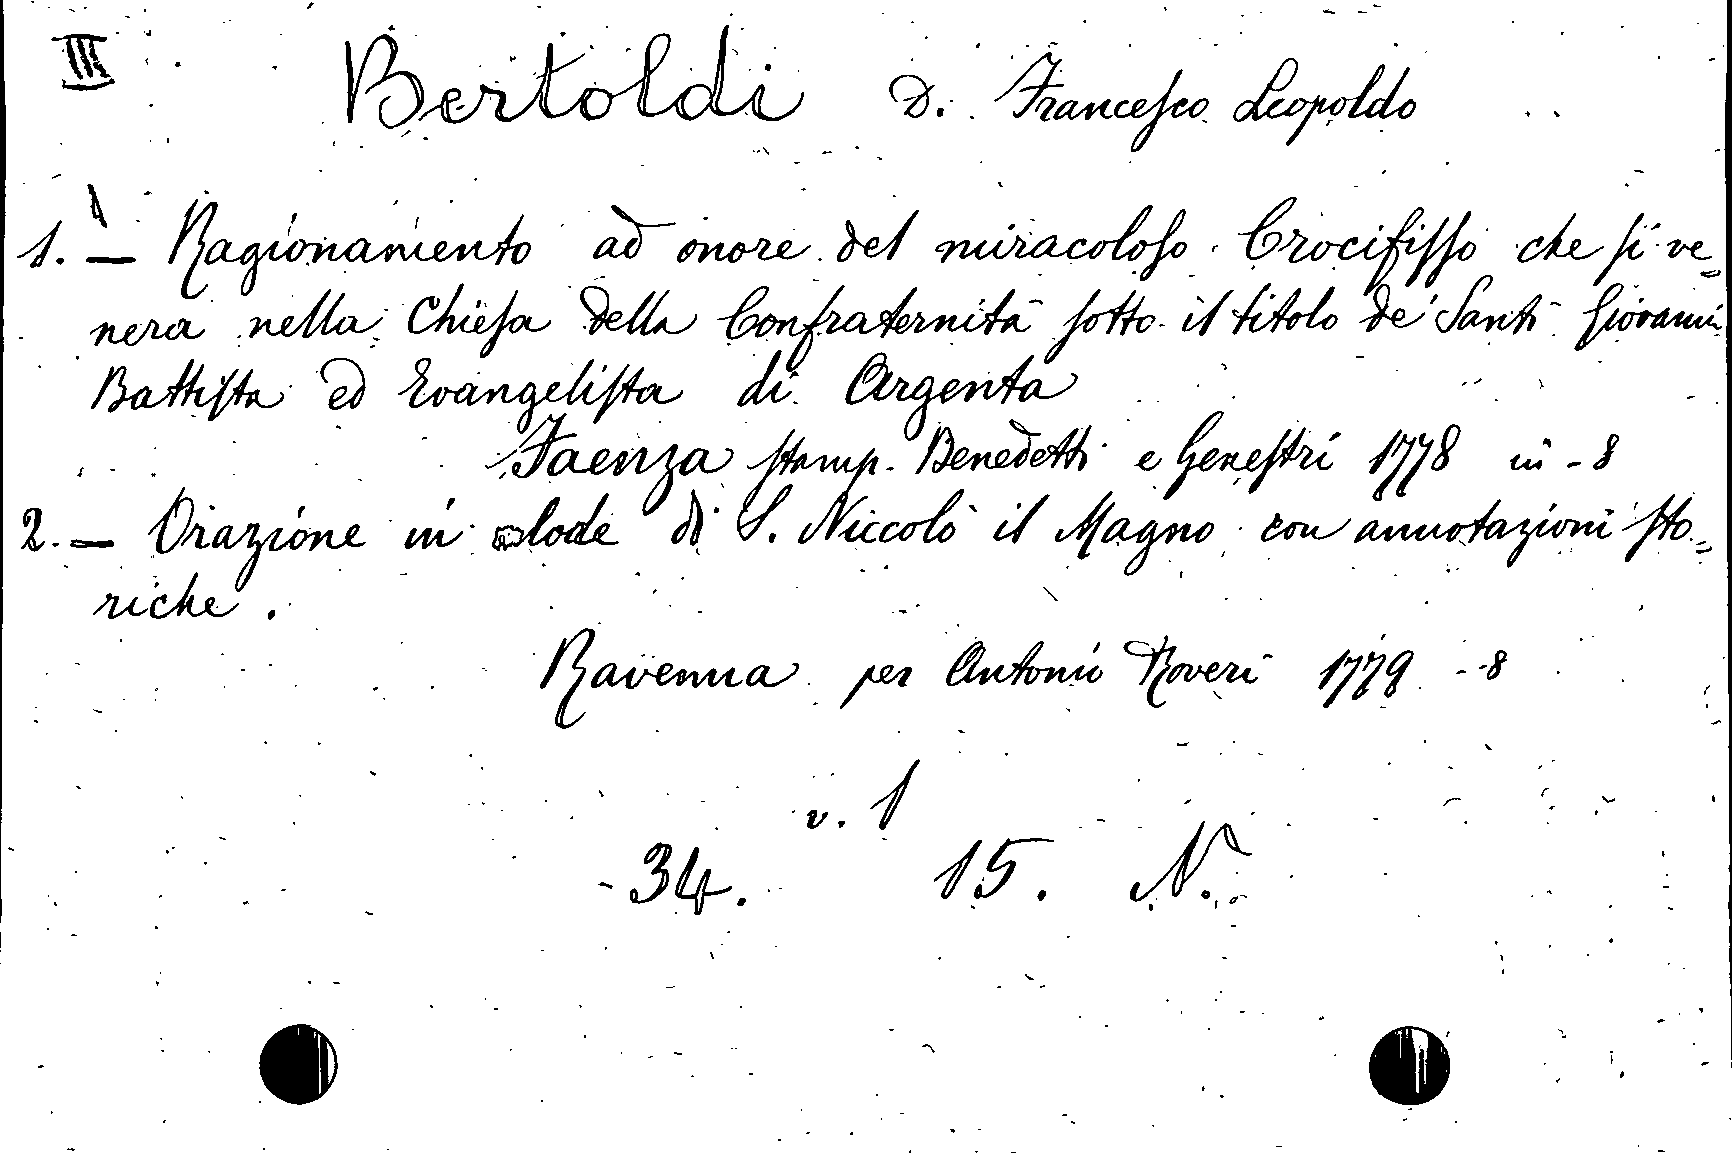 III Bertoldi D. Francesco Leopoldo
1. — Ragionamento ad onore del miracoloso Crocifisso che si ve=
nera nella Chiesa della Confraternità sotto il titolo de' Santi Giovanni
Battista ed Evangelista di Argenta
Faenza stamp. Benedetti e Genestri 1778 in-8
2. — Orazione in lode di S. Niccolò il Magno con annotazioni sto=
riche.
Ravenna per Antonio Roveri 1779 -8
v. 1
34. 15. N.